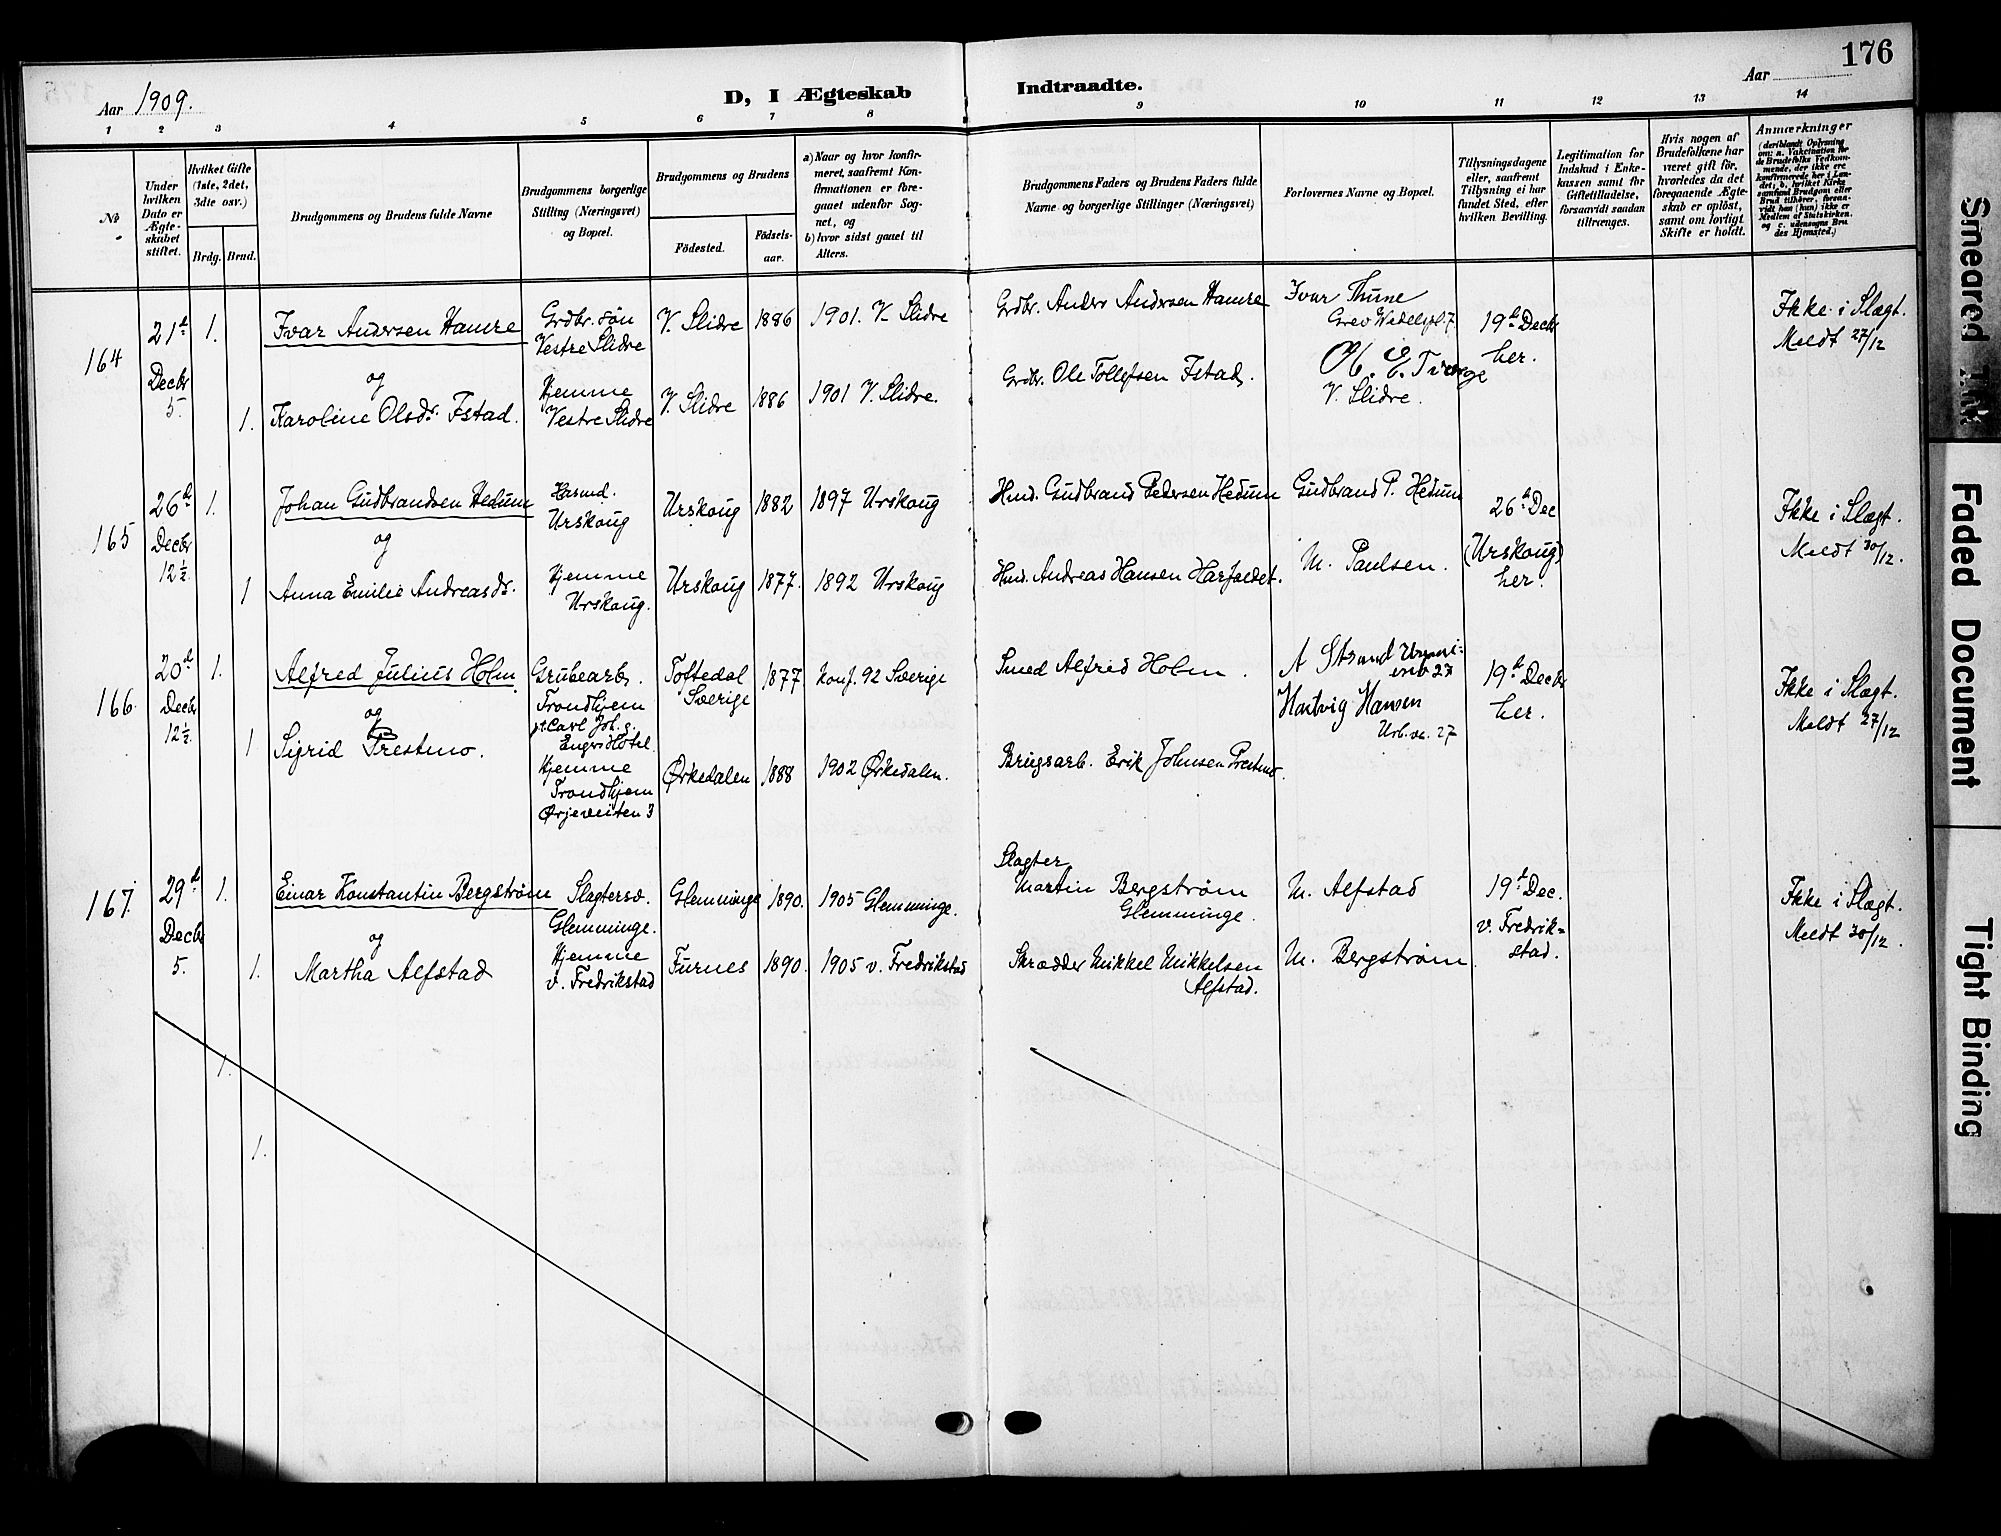 176
Aar 1909.
D, I Ægteskab Indtraadte.
Aar
1 2 3 4 5 6 7 8 9 10 11 12 13 14
№
Under hvilken Dato er Ægteskabet stiftet.
Hvilket Gifte (1ste, 2det, 3die osv.)
Brdg. Brud.
Brudgommens og Brudens fulde Navne
Brudgommens borgerlige Stilling (Næringsvei) og Bopæl.
Brudgommens og Brudens
Födested.
Födselsaar.
a) Naar og hvor konfirmeret, saafremt Konfirmationen er foregaaet udenfor Sognet, og
b) hvor sidst gaaet til Alters.
Brudgommens Faders og Brudens Faders fulde Navne og borgerlige Stillinger (Næringsvei)
Forlovernes Navne og Bopæl.
Tillysningsdagene eller, saafremt Tillysning ei har fundet Sted, efter hvilken Bevilling.
Legitimation for Indskud i Enkekassen samt for Giftetilladelse, forsaavidt saadan tiltrænges.
Hvis nogen af Brudefolkene har været gift før, hvorledes da det foregaaende Ægteskab er oplöst, samt om lovligt Skifte er holdt.
Anmærkninger (deriblandt Oplysning om: a. Vakcination for de Brudefolks Vedkommende, der ikke ere konfirmerede her i Landet; b. hvilket Kirkesamfund Brudgom eller Brud tilhører, forsaavidt han (hun) ikke er Medlem af Statskirken, og c. udensogns Brudes Hjemsted.)
164
21d Decbr 5.
1.
Ivar Andersen Hamre
Grdbr. søn Vestre Slidre
V. Slidre
1886
1901. V. Slidre
Grdbr. Anders Andersen Hamre
Ivar Thune
Grev Wedelspl. 7
19d Decbr her.
Ikke i Slægt.
Meldt 27/12
og
1.
Karoline Olsdr. Fstad.
Hjemme Vestre Slidre
V. Slidre
1886
1901 V. Slidre.
Grdbr. Ole Tollefsen Fstad.
V. Slidre.
165
26d Decbr 12½.
1.
Johan Gudbrandsen Hedum
Husmd. Urskoug
Urskoug
1882
1897 Urskoug
Hmd. Gudbrand Pedersen Hedum
Gudbrand P. Hedum
26d Dec (Urskoug) her.
Ikke i Slægt.
Meldt 30/12.
og
1
Anna Emilie Andreasdr.
Hjemme Urskoug.
Urskoug
1877.
1892 Urskoug
Hmd. Andreas Hansen Harfaldet.
M. Paulsen.
166
20d Decbr 12½.
1.
Alfred Julius Holm.
Grubearb. Trondhjem
pt. Carl Joh. g. Engros Hotel.
Toftedal Sverige
1877
konf. 92 Sverige
Smed Alfred Holm.
A Strand
Hartvig Hansen
Urb. v. 27
19d Decbr her.
Ikke i Slægt.
Meldt 27/12
og
1
Sigrid Prestmo.
Hjemme Trondhjem
Ørjaveiten 3
Ørkedalen
1888
1902 Ørkedalen.
Brugsarb. Erik Johnsen Prestmo.
167.
29d Decbr 5.
1.
Einar Konstantin Bergstrøm
Slagtersv. Glemminge.
Glemminge
1890.
1905 Glemminge.
Slagter Martin Bergstrøm Glemminge.
M. Alfstad
19d Dec. v. Fredrikstad.
Ikke i Slægt.
Meldt 30/12.
og
1.
Martha Alfstad
Hjemme v. Fredrikstad
Furnes
1890.
1905 v. Fredrikstad
Skrædder Mikkel Mikkelsen Alfstad.
M. Bergstrøm
1.
1.
Smeared Ink
Faded Document
Tight Binding